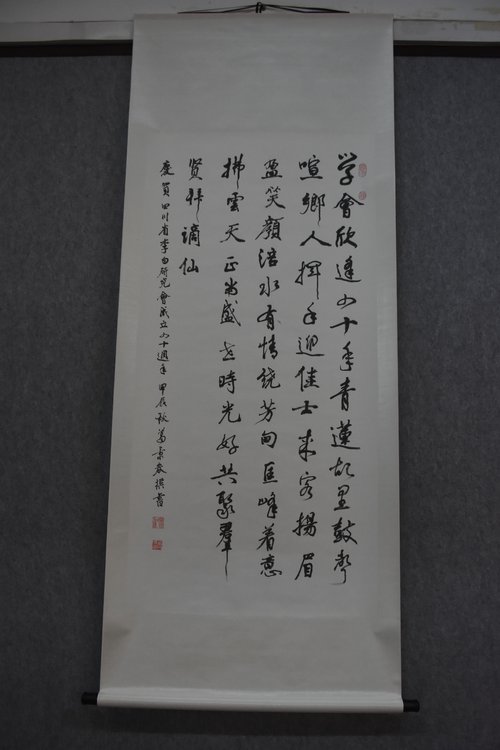 学會欣逢四十年青蓮故里鼓聲
喧鄉人揮手迎佳士来客揚眉
盈笑顏涪水有情繞芳甸匡峰着意
拂雲天正当盛世時光好共聚羣
賢拜謫仙
慶賀四川省李白研究會成立四十週年 甲辰秋 葛景春撰書